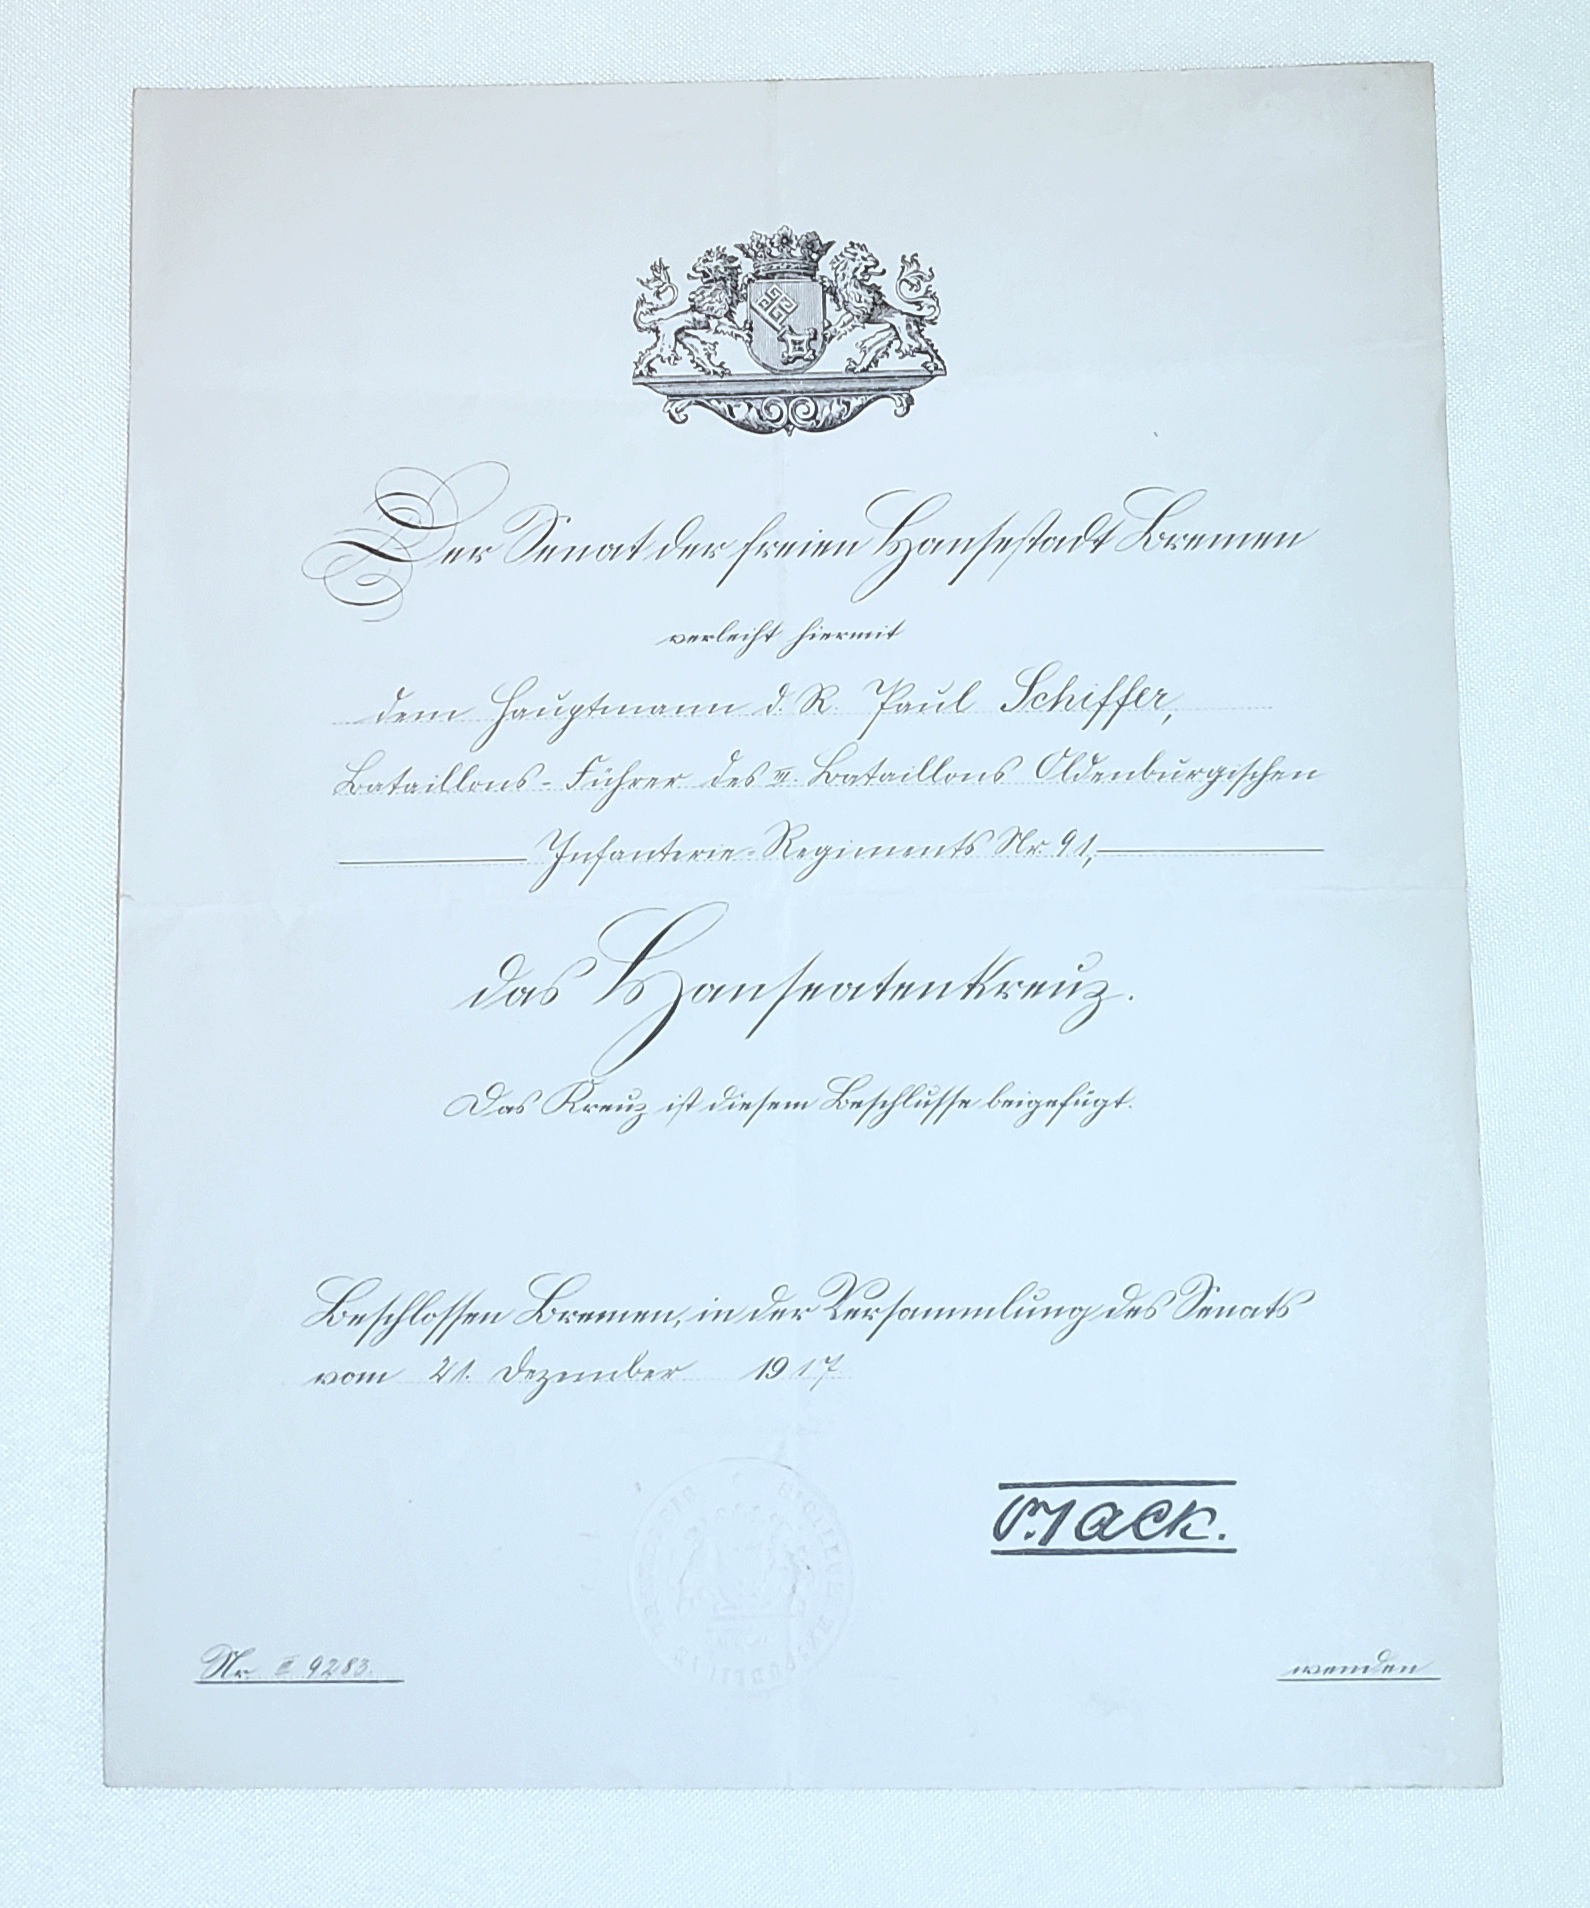 Der Senat der freien Hansestadt Bremen
verleiht hiermit
dem Hauptmann d. R. Paul Schiffer,
Bataillons-Führer des III. Bataillons Oldenburgischen
Infanterie-Regiments Nr. 91,
das Hanseatenkreuz.
Das Kreuz ist diesem Beschlusse beigefügt.
Beschlossen Bremen, in der Versammlung des Senats
vom 21. Dezember 1917
Nr. II 9283.
wenden